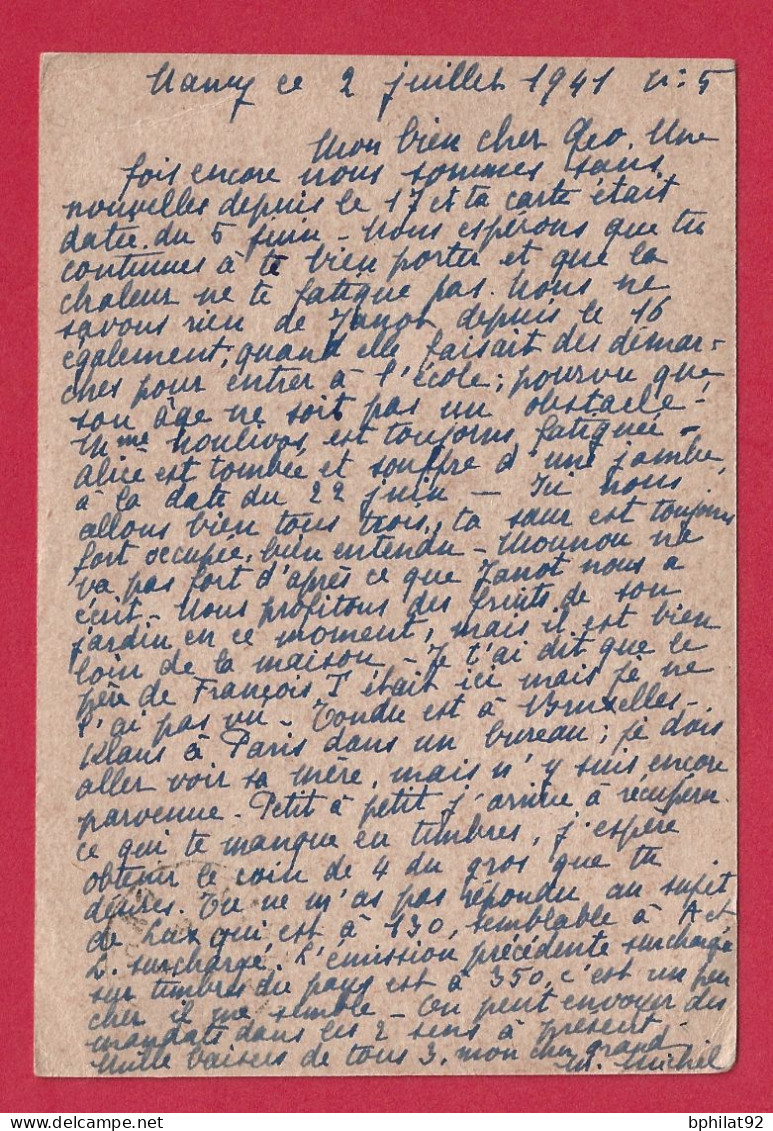 Nancy ce 2 juillet 1941 n: 5
Mon bien cher Geo. Une
fois encore nous sommes sans
nouvelles depuis le 17 et ta carte était
datée du 5 juin - Nous espérons que tu
continues à te bien porter et que la
chaleur ne te fatigue pas. Nous ne
savons rien de Janot depuis le 16
également, quand elle faisait des démar-
ches pour entrer à l'école ; pourvu que
son âge ne soit pas un obstacle -
Mme est toujours fatiguée -
Alice est tombée et souffre d'une jambe,
à la date du 22 juin - Ici nous
allons bien tous trois, ta sœur est toujours
fort occupée, bien entendu - Mounou ne
va pas fort d'après ce que Janot nous a
écrit - Nous profitons des fruits de son
jardin en ce moment, mais il est bien
loin de la maison - Je t'ai dit que le
père de François J était ici mais je ne
l'ai pas vu - Tondu est à Bruxelles -
Klaus à Paris dans un bureau ; je dois
aller voir sa mère, mais n'y suis encore
parvenue. Petit à petit j'arrive à récupérer
ce qui te manque en timbres, j'espère
obtenir le coin de 4 du gros que tu
désires. Tu ne m'as pas répondu au sujet
de Lux qui est à 130, semblable à A et
L. surchargé. L'émission précédente surchargée
sur timbres du pays est à 350, c'est un peu
cher il me semble - On peut envoyer des
mandats dans les 2 sens à présent -
Mille baisers de tous 3, mon cher grand
M. Michel
bphilat92